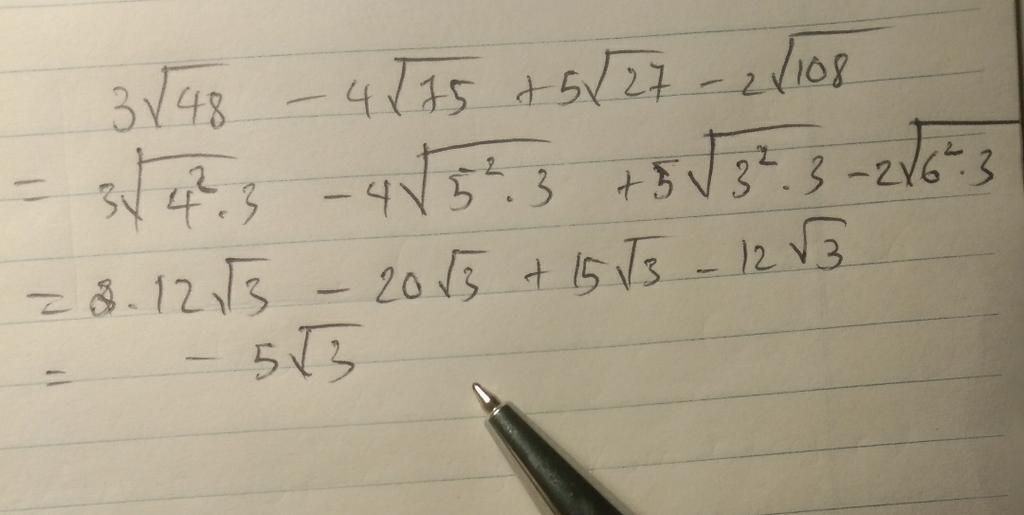 3√48 - 4√75 + 5√27 - 2√108
= 3√4².3 - 4√5².3 + 5√3².3 - 2√6².3
= . 12√3 - 20√3 + 15√3 - 12√3
= - 5√3